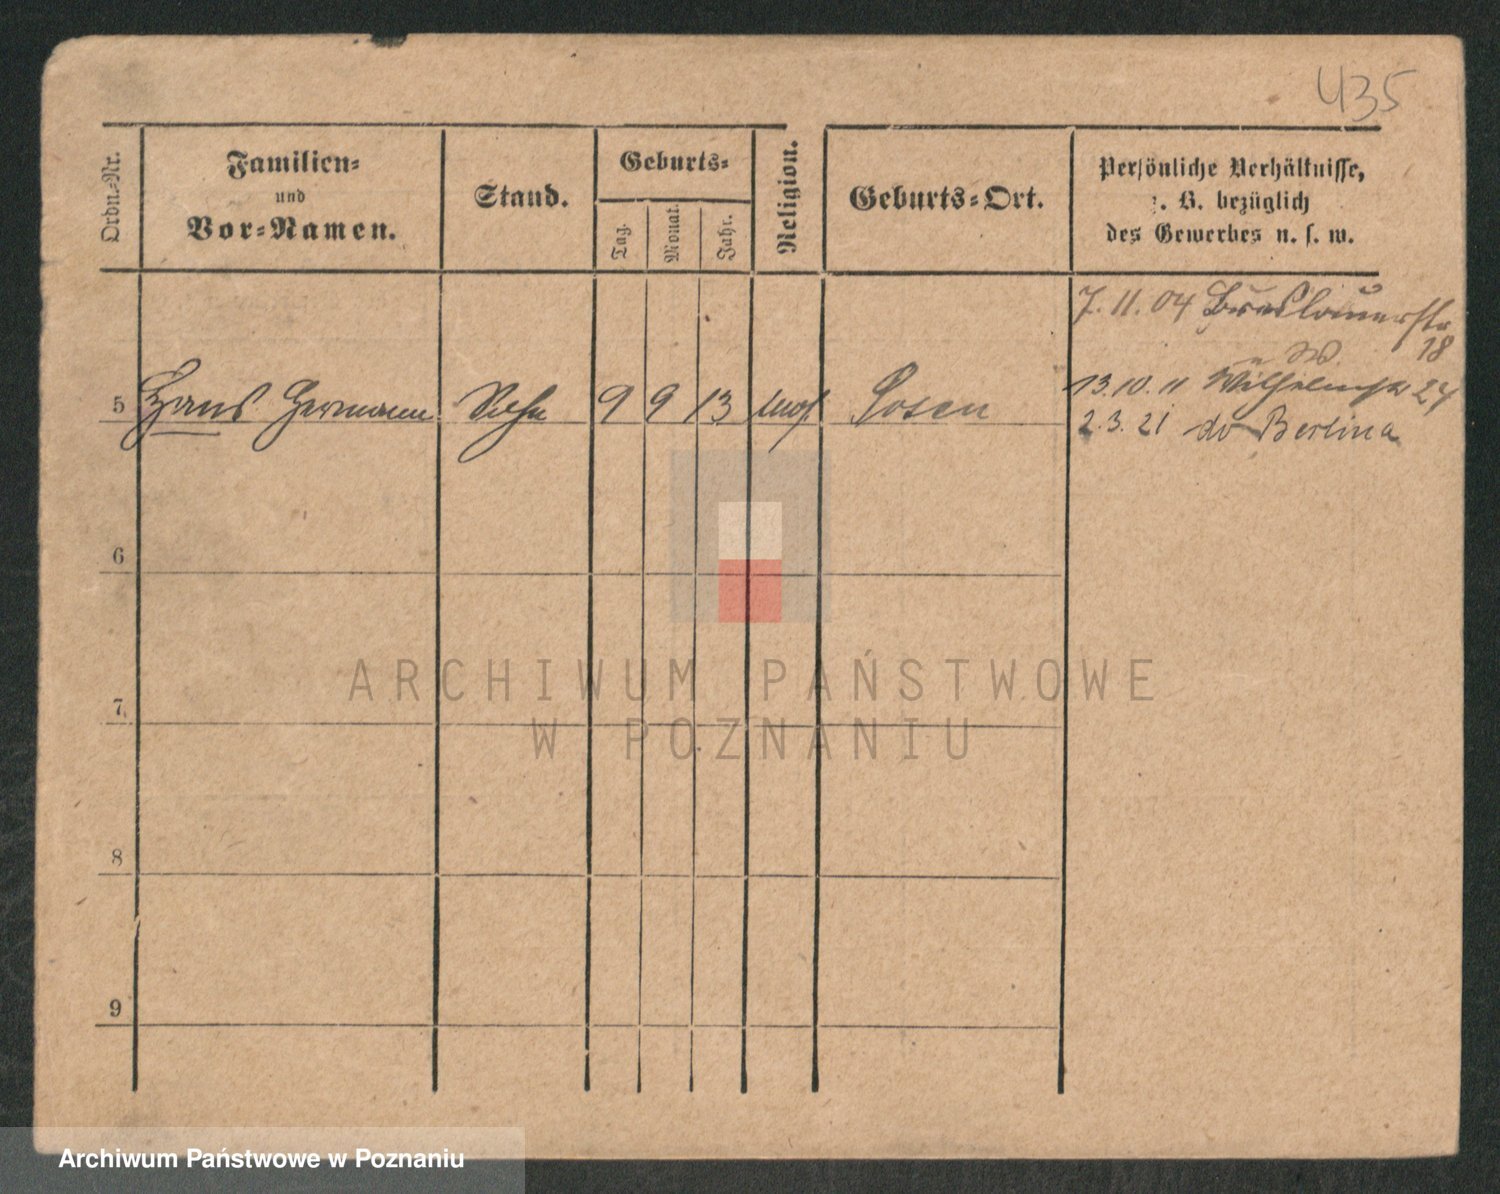 435
Ordn.-Nr.
Familien-
und
Vor-Namen.
Stand.
Geburts-
Tag.
Monat.
Jahr.
Religion.
Geburts-Ort.
Persönliche Verhältnisse,
z. B. bezüglich
des Gewerbes u. s. w.
7. 11. 04 Breslauerstr
18
5 Hans Hermann Sohn 9 9 13 mos. Posen
13. 10. 11 Wilhelmstr 27
2. 3. 21 do Berlina
6
7
8
9
ARCHIWUM PAŃSTWOWE
W POZNANIU
Archiwum Państwowe w Poznaniu